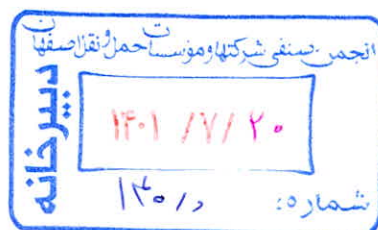 انجمن صنفی شرکتها و مؤسسات حمل و نقل اصفهان
دبیرخانه
۱۴۰۱ /۷/ ۲۰
شماره: د/۱۳۰